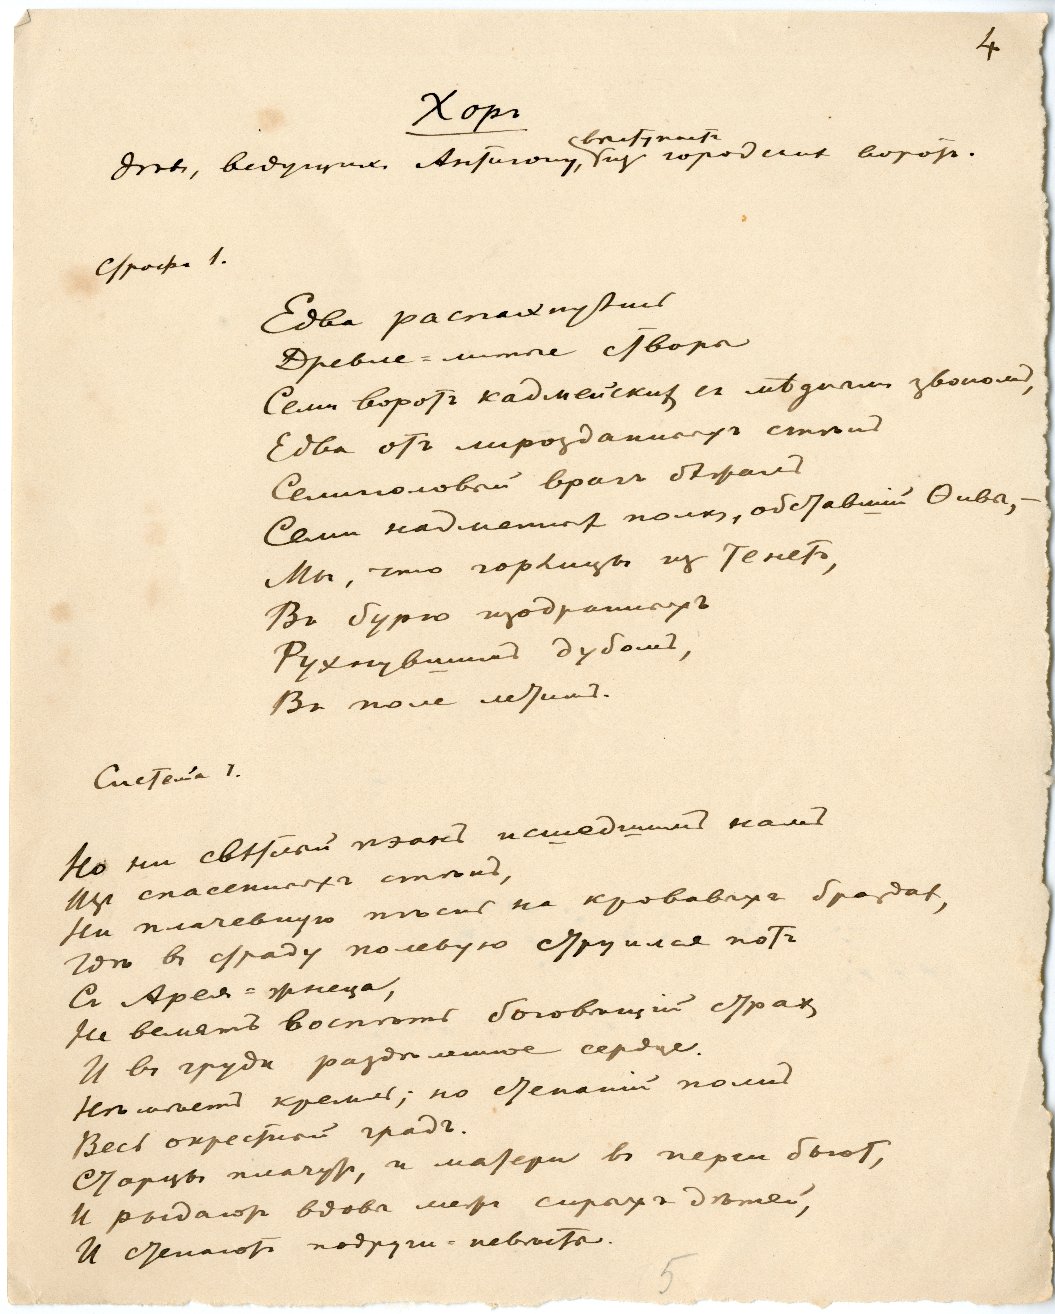 4
Хоръ
выступаетъ
дѣвъ, ведущихъ Антигону, из городскихъ воротъ.
Строфа 1.
Едва распахнулись
Древле-литые створы
Семи воротъ кадмейских съ мѣднымъ звономъ,
Едва отъ мирозданныхъ стѣнъ
Семиголовый врагъ бѣжалъ
Семи надменных полкъ, обставшій Ѳивы,—
Мы, что горлицы из тенетъ,
Въ бурю изодранныхъ
Рухнувшимъ дубомъ,
Въ поле летимъ.
Система 1.
Но ни свѣтлый пэанъ исшедшимъ намъ
Изъ спасенныхъ стѣнъ,
Ни плачевную пѣснь на кровавыхъ браздах,
Гдѣ в страду полевую струился потъ
Съ Арея-жнеца,
Не велятъ воспѣть боговѣщій страх
И въ груди раздѣленное сердце.
Нѣмѣетъ кремль; но стенаній полнъ
Весь окрестный градъ.
Старцы плачут, и матери в перси бьют,
И рыдают вдовы меж сирыхъ дѣтей,
И стенаютъ подруги-невѣсты.
5